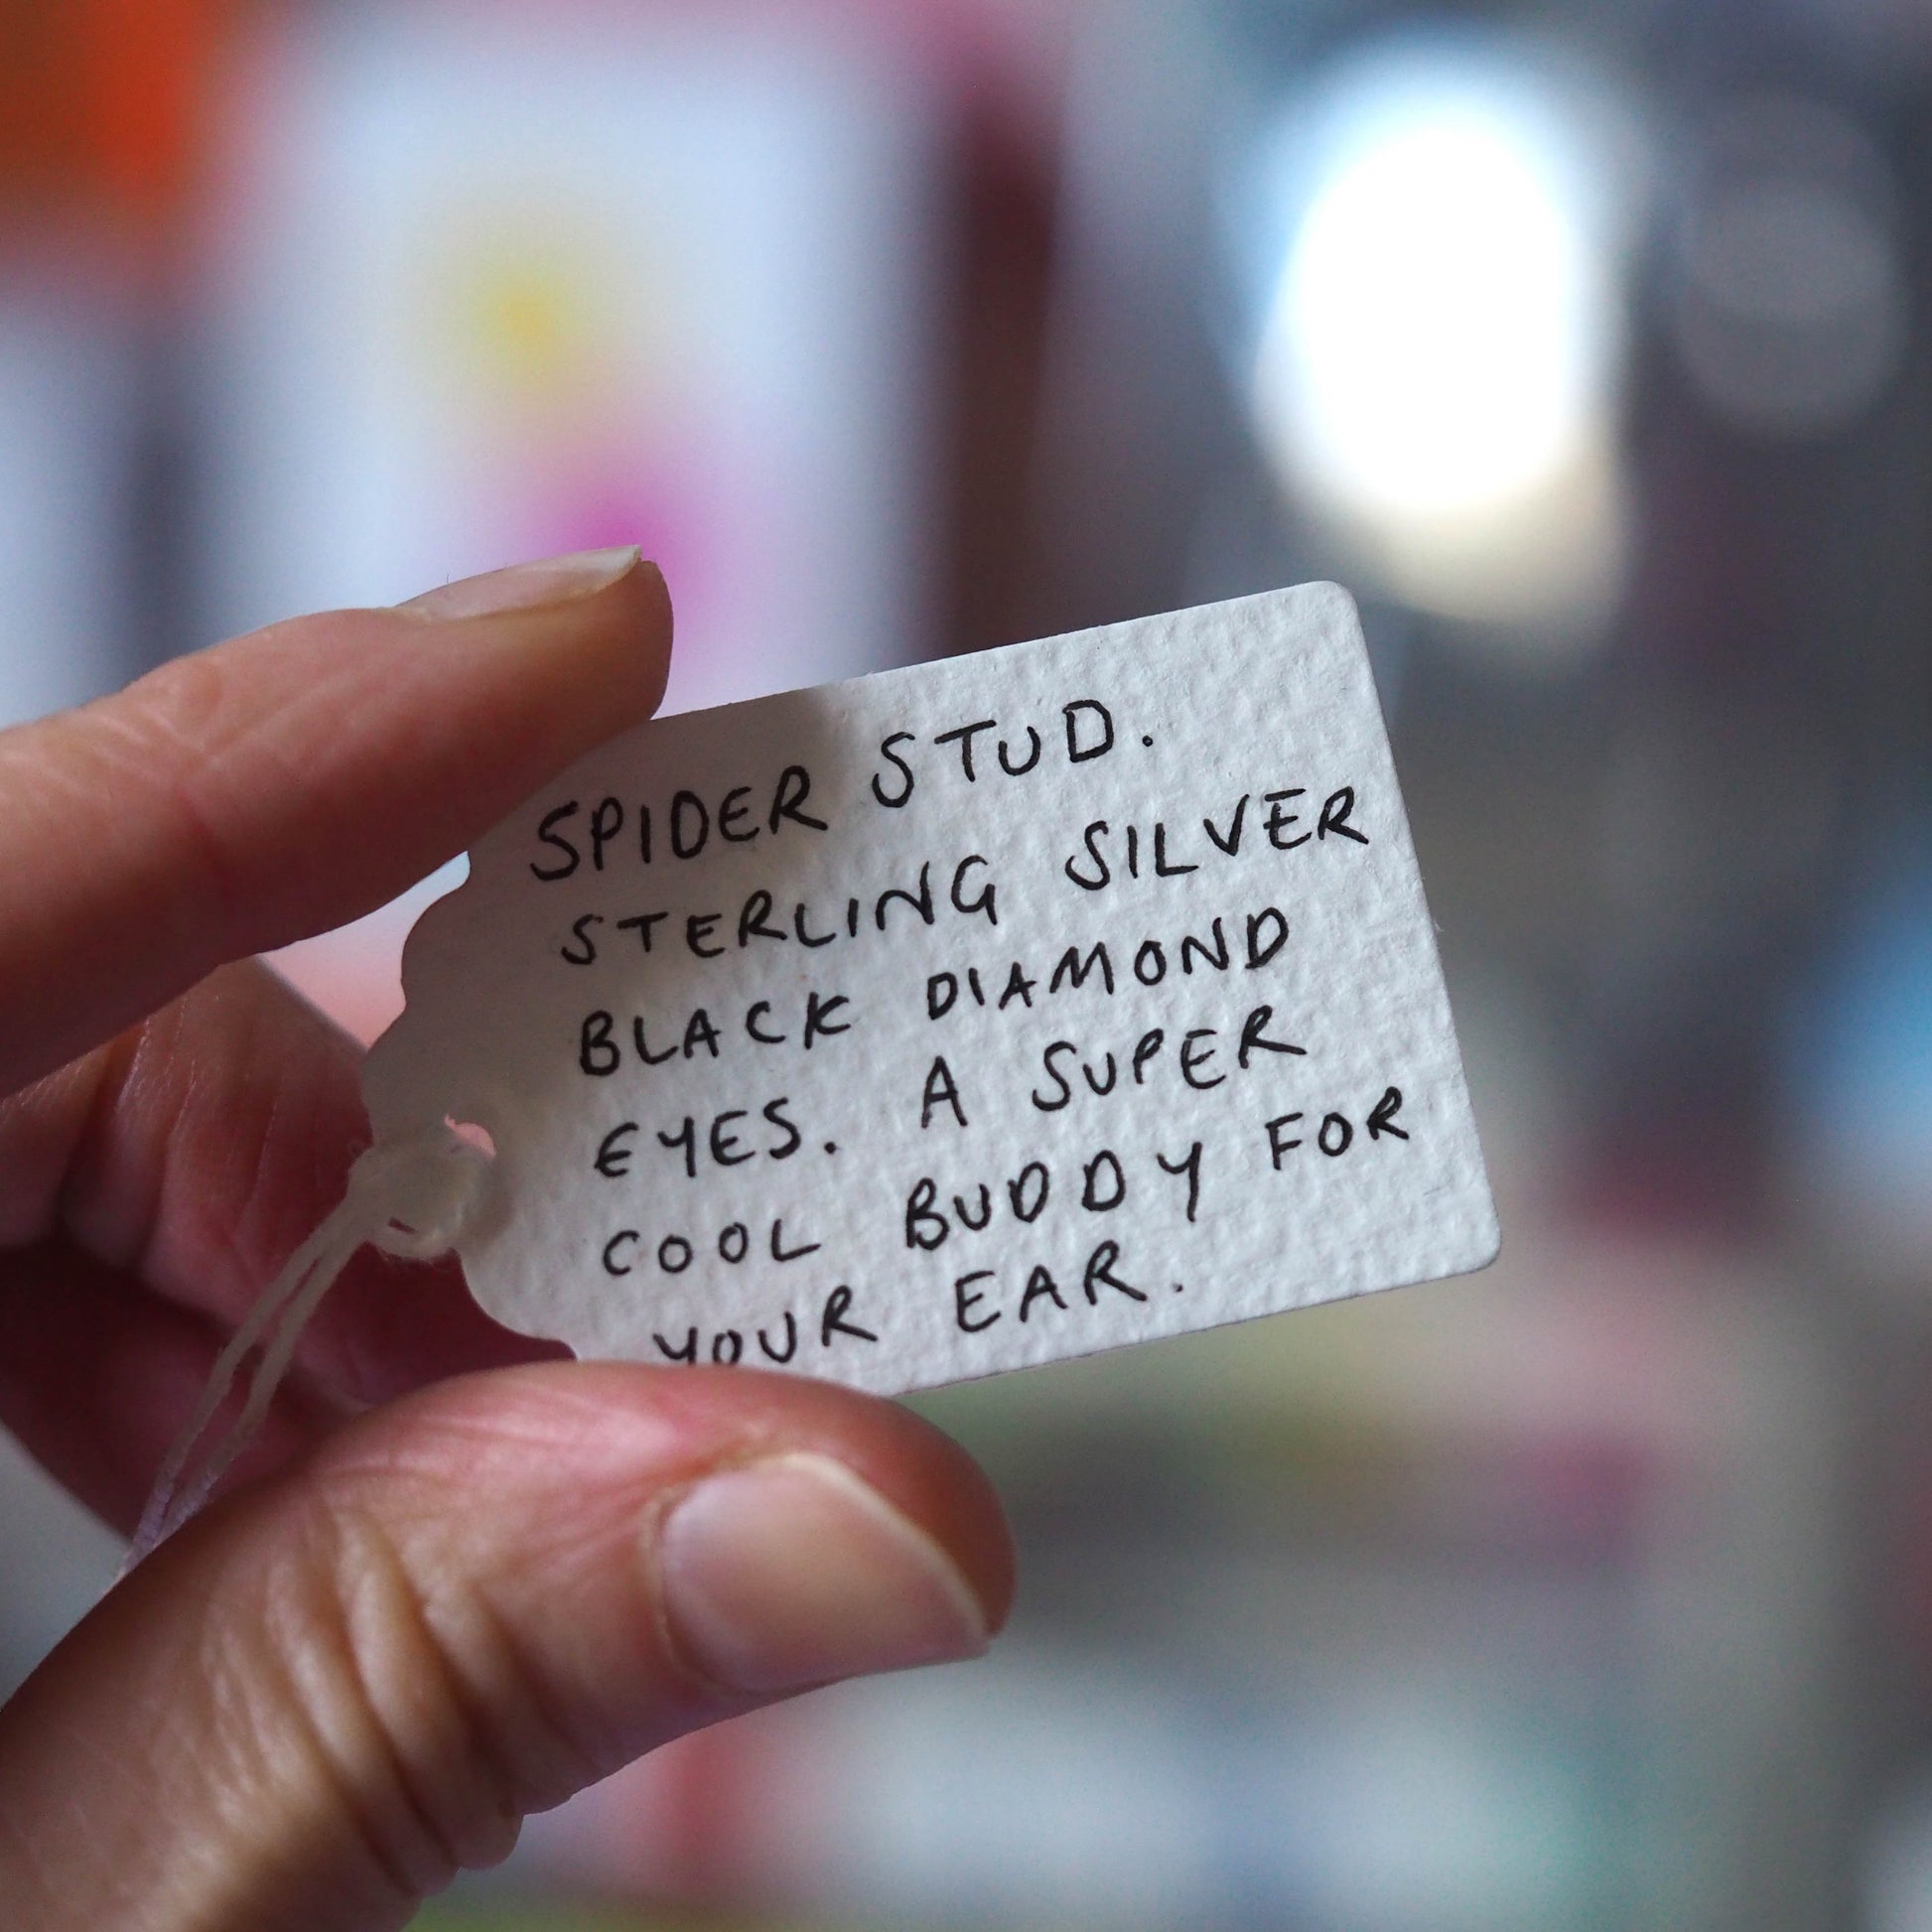 SPIDER STUD.
STERLING SILVER
BLACK DIAMOND
EYES. A SUPER
COOL BUDDY FOR
YOUR EAR.